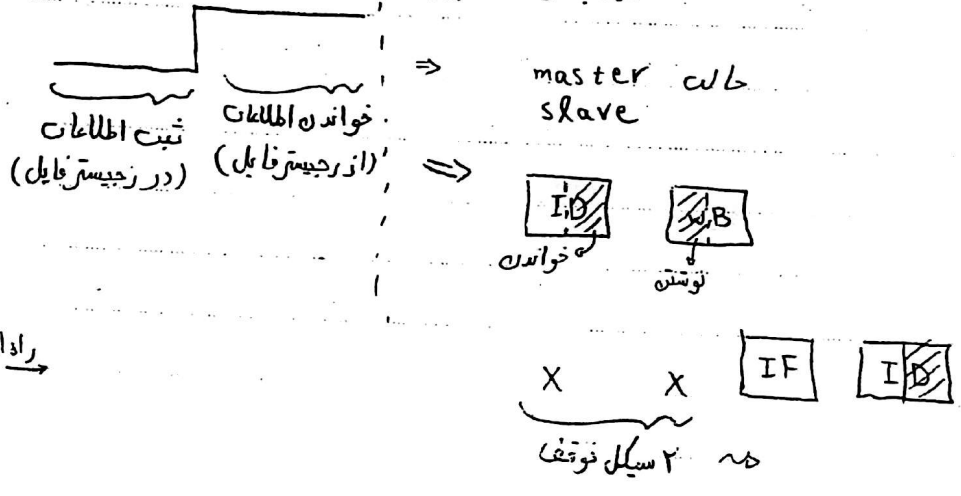 ثبت اطلاعات
(در رجیسترفایل)
خواندن اطلاعات
(از رجیسترفایل)
⇒
حالت master
slave
⇒
ID
WB
خواندن
نوشتن
X X IF ID
۲ سیکل توقف